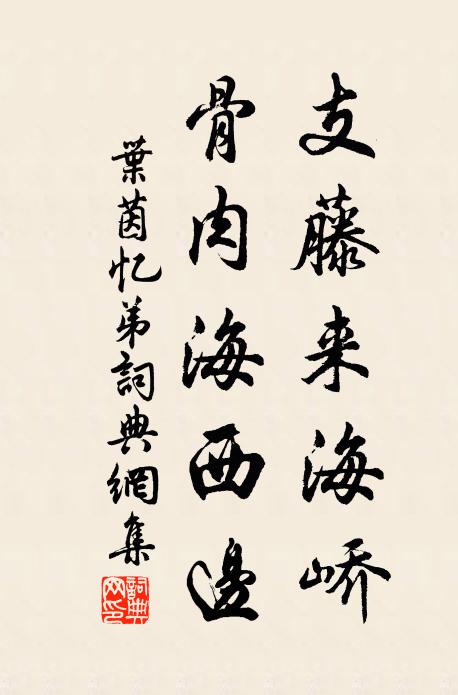 支藤来海峤
骨肉海西邊
葉茵忆弟詞典網集
詞典网印